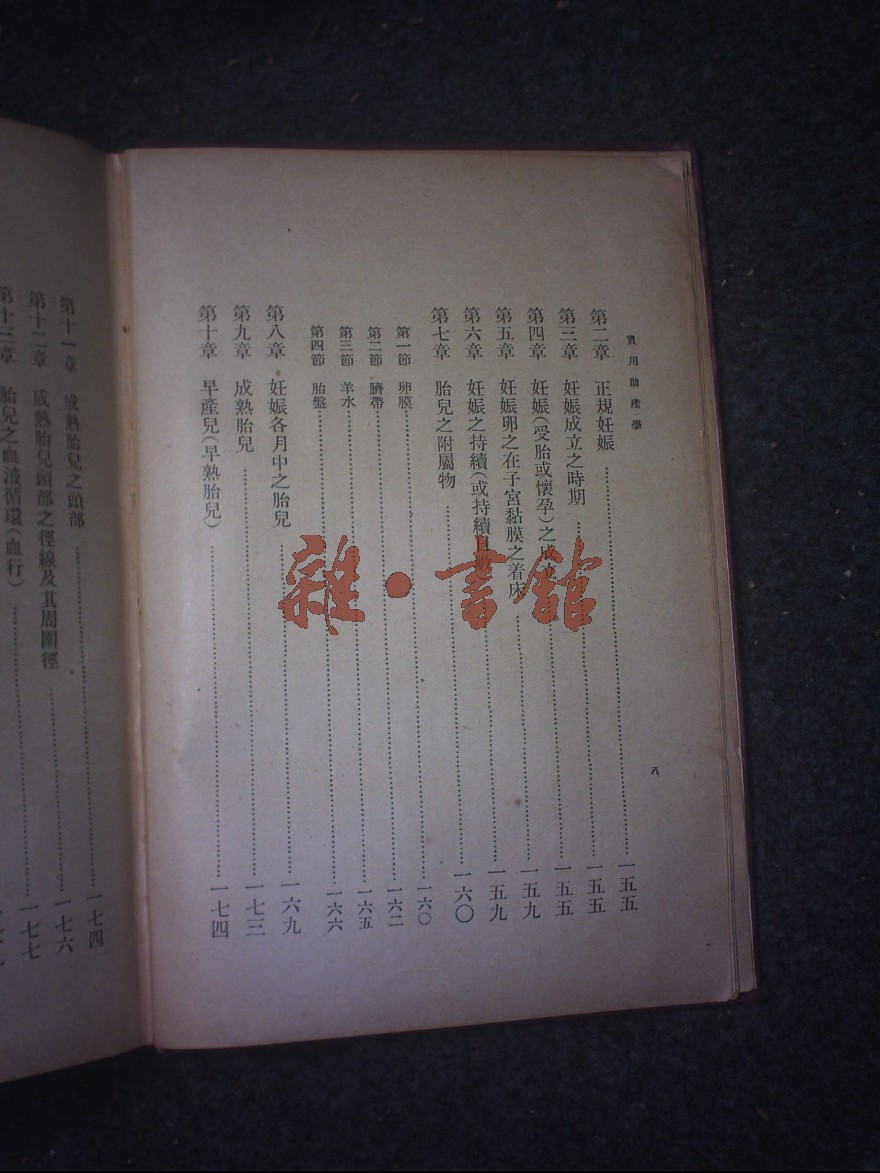 實用助產學
八
第二章 正規妊娠……一五五
第三章 妊娠成立之時期……一五五
第四章 妊娠(受胎或懷孕)之成……一五五
第五章 妊娠卵之在子宮黏膜之着床……一五九
第六章 妊娠之持續(或持續日……一五九
第七章 胎兒之附屬物……一六〇
第一節 卵膜……一六〇
第二節 臍帶……一六二
第三節 羊水……一六五
第四節 胎盤……一六六
第八章 妊娠各月中之胎兒……一六九
第九章 成熟胎兒……一七三
第十章 早產兒(早熟胎兒)……一七四
第十一章 成熟胎兒之頭部……一七四
第十二章 成熟胎兒頭部之徑線及其周圍徑……一七六
第十三章 胎兒之血液循環(血行)……一七七
雜·書館